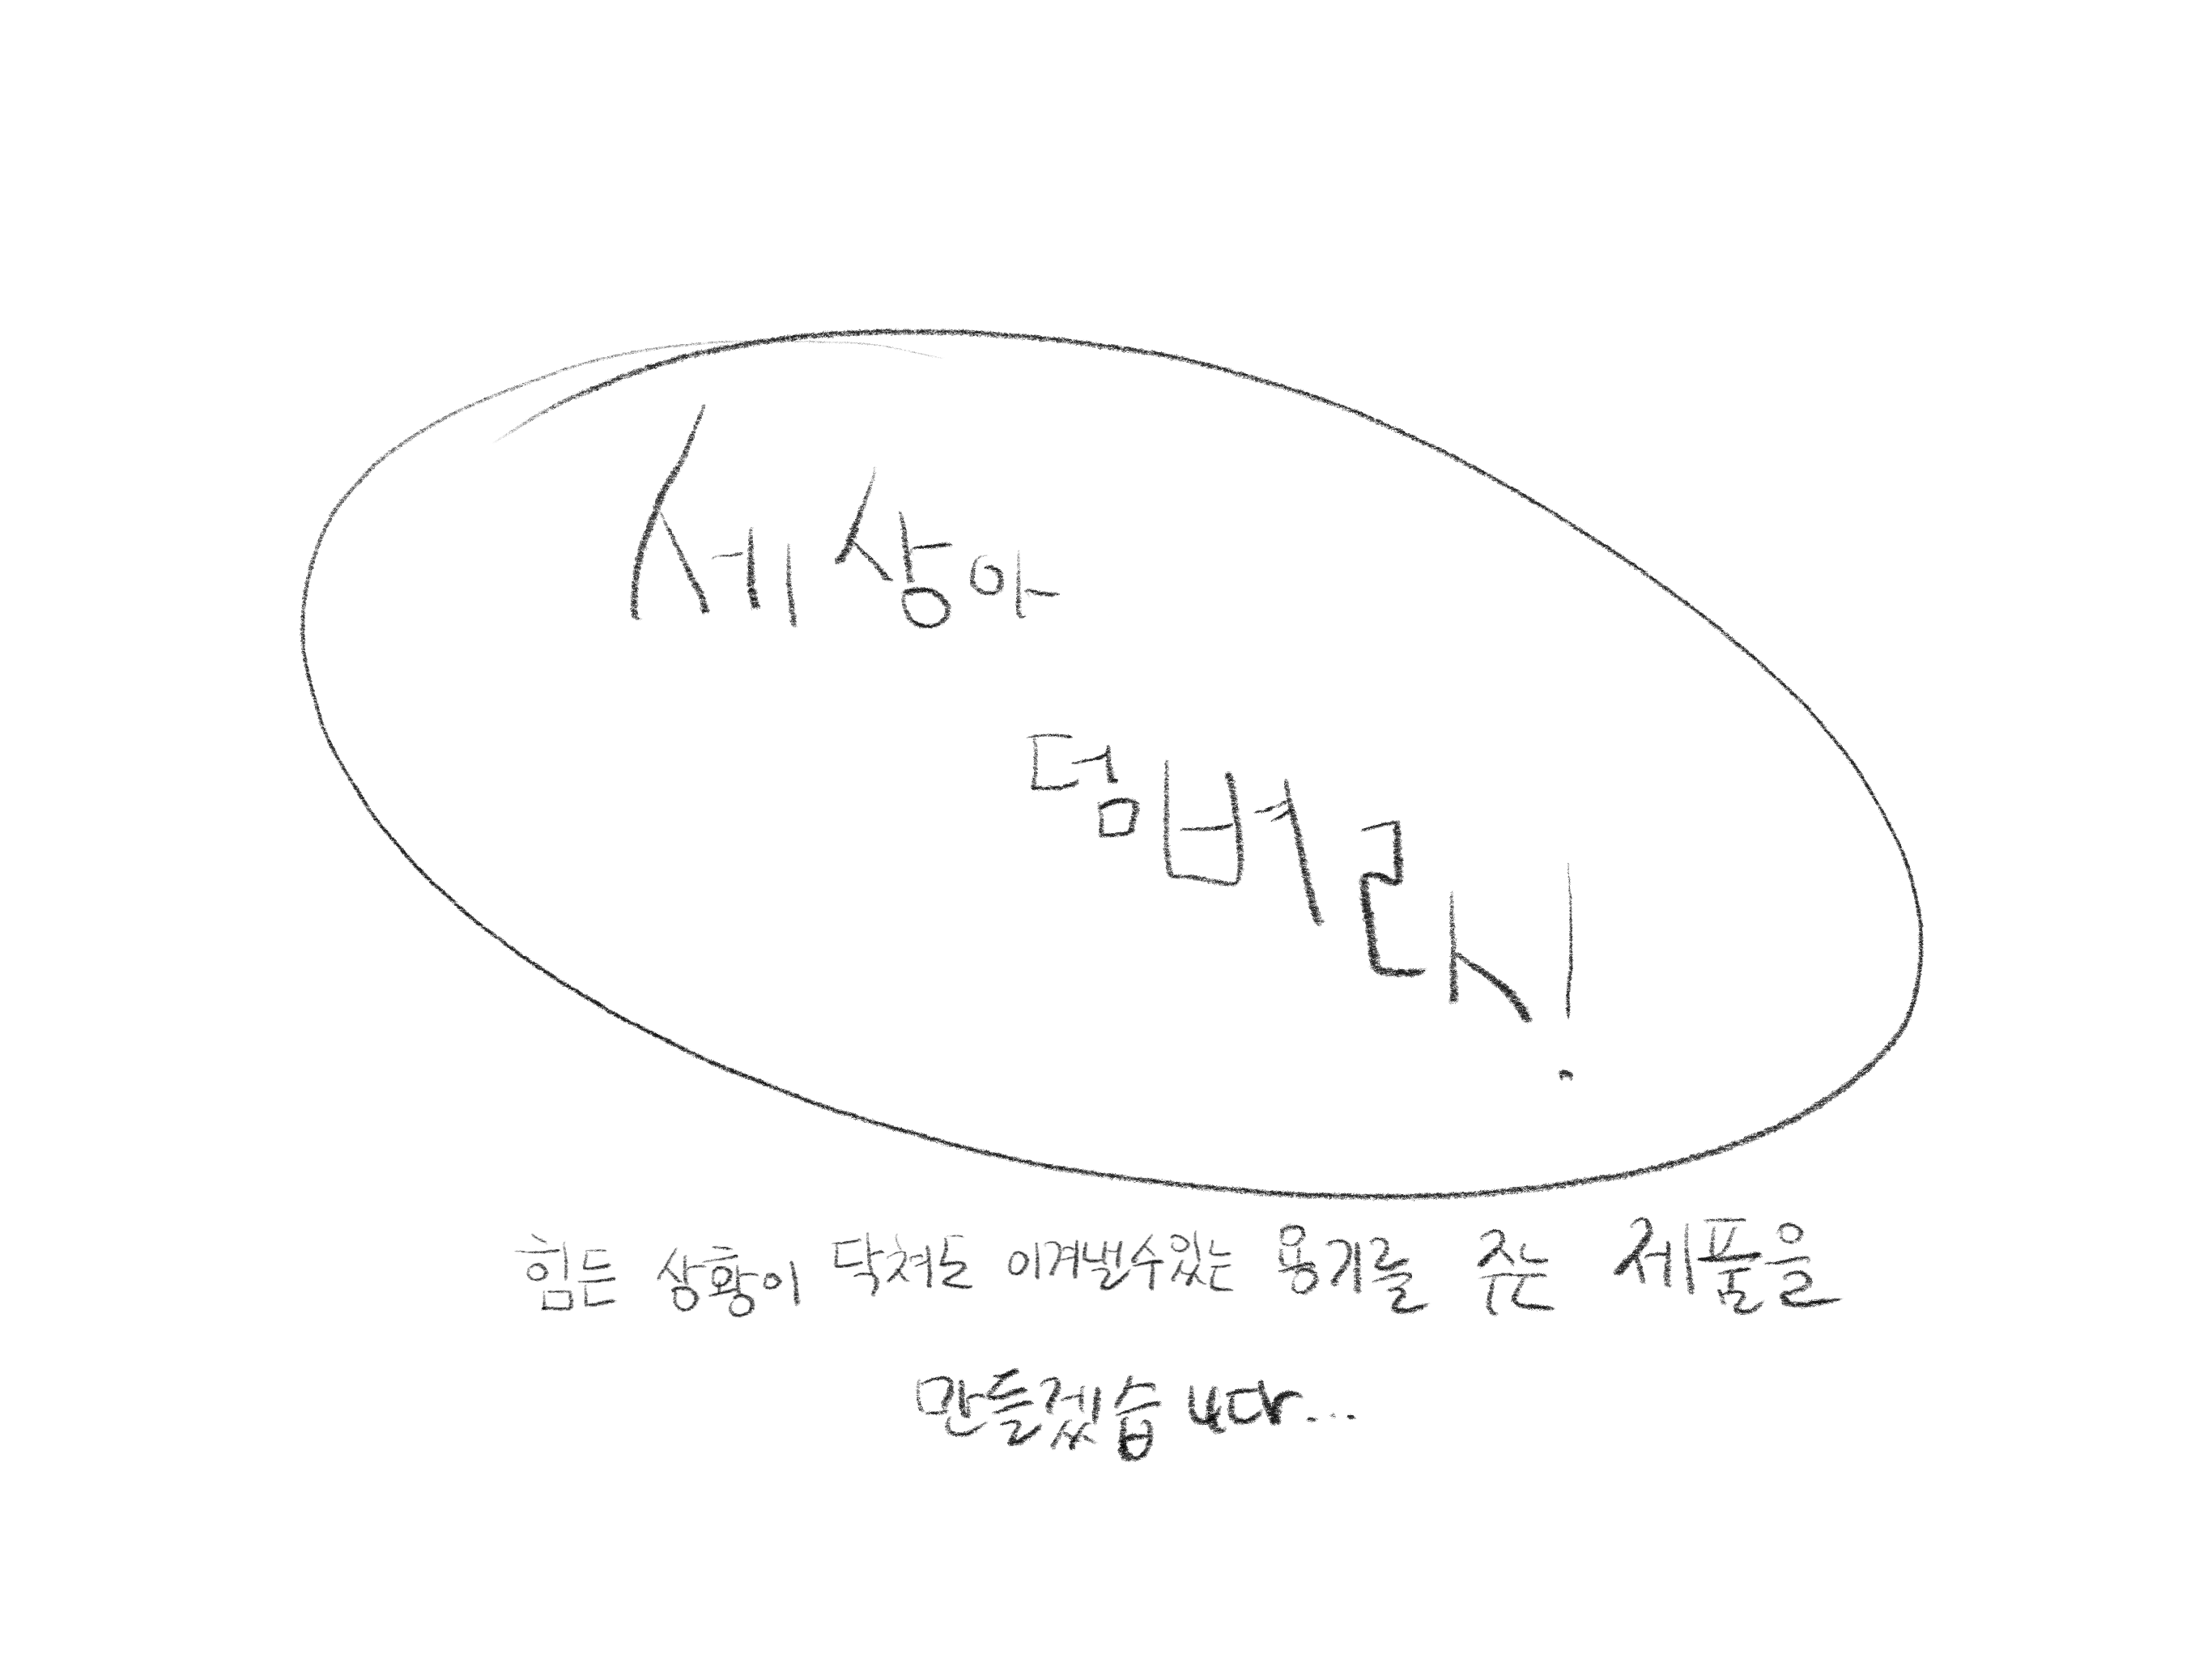 세상아
덤벼라!
힘든 상황이 닥쳐도 이겨낼수있는 용기를 주는 제품을
만들겠습니다...